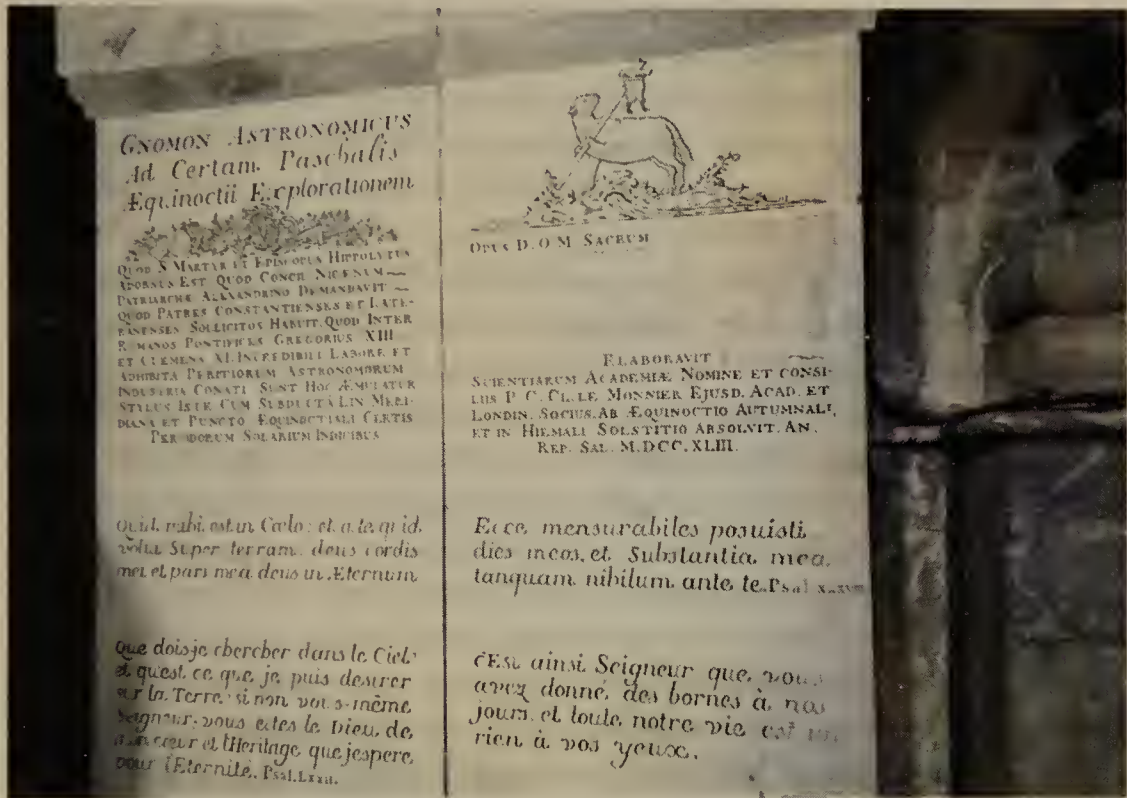 GNOMON ASTRONOMICUS
Ad Certam Paschalis
Æquinoctii Explorationem
QUOD S MARTYR ET EPISCOPUS HIPPOLYTUS
ADORSUS EST QUOD CONCIL NICENUM
PATRIARCHÆ ALEXANDRINO DEMANDAVIT
QUOD PATRES CONSTANTIENSES ET LATE-
RANENSES SOLLICITOS HABUIT. QUOD INTER
ROMANOS PONTIFICES GREGORIUS XIII
ET CLEMENS XI. INCREDIBILI LABORE ET
ADHIBITA PERITIORUM ASTRONOMORUM
INDUSTRIA CONATI SUNT HOC ÆMULATUR
STYLUS ISTE CUM SUBDUCTA LIN MERI-
DIANA ET PUNCTO ÆQUINOCTIALI CERTIS
PERIODORUM SOLARIUM INDICIBUS
Quid mihi est in Cœlo: et a te quid
volui Super terram. deus cordis
mei et pars mea deus in Æternum
Que dois je chercher dans le Ciel
et qu'est ce que je puis desirer
sur la Terre, si non vous-même
Seigneur, vous etes le Dieu de
mon cœur et l'Heritage que j'espere
pour l'Eternité. Psal. LXXII.
OPUS D. O M SACRUM
ELABORAVIT
SCIENTIARUM ACADEMIÆ NOMINE ET CONSI-
LIIS P. C. CL. LE MONNIER EJUSD. ACAD. ET
LONDIN. SOCIUS. AB ÆQUINOCTIO AUTUMNALI,
ET IN HIEMALI SOLSTITIO ABSOLVIT. AN.
REP. SAL. M.DCC.XLIII.
Ecce mensurabiles posuisti
dies meos, et Substantia mea
tanquam nihilum ante te. Psal
c'Est ainsi Seigneur que vous
avez donné des bornes à nos
jours, et toute notre vie est un
rien à vos yeux.